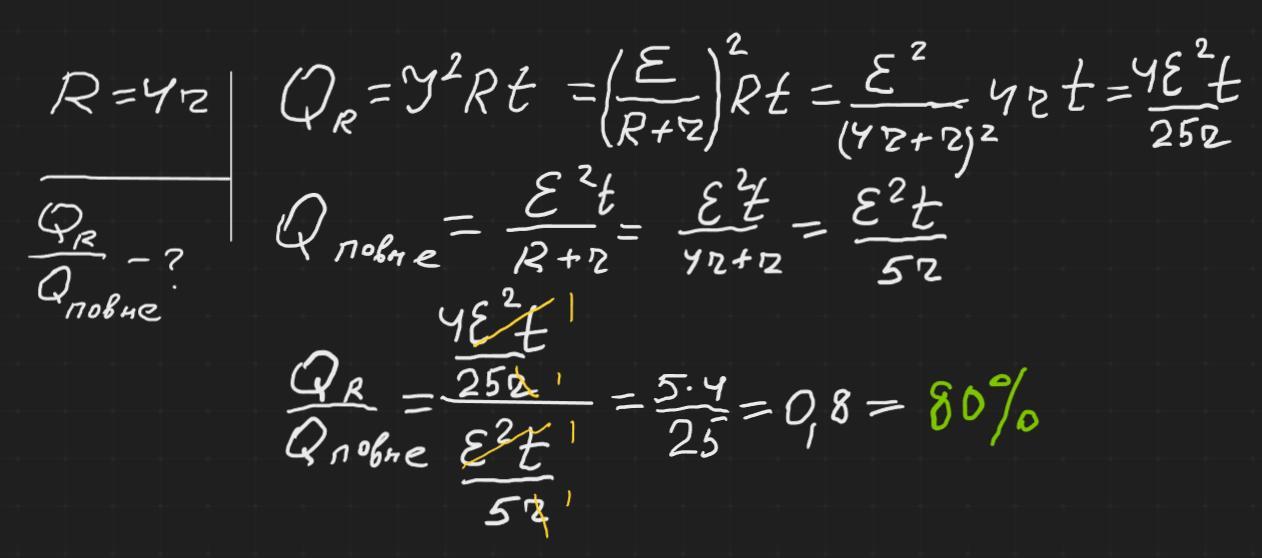 R = 4r
Q_R = I²Rt = (ℰ/(R+r))² Rt = ℰ²/(4r+r)² 4r t = 4ℰ²t/25r
Q_R/Q_повне - ?
Q_повне = ℰ²t/(R+r) = ℰ²t/(4r+r) = ℰ²t/5r
Q_R/Q_повне = (4ℰ²t/25r)/(ℰ²t/5r) = 5·4/25 = 0,8 = 80%